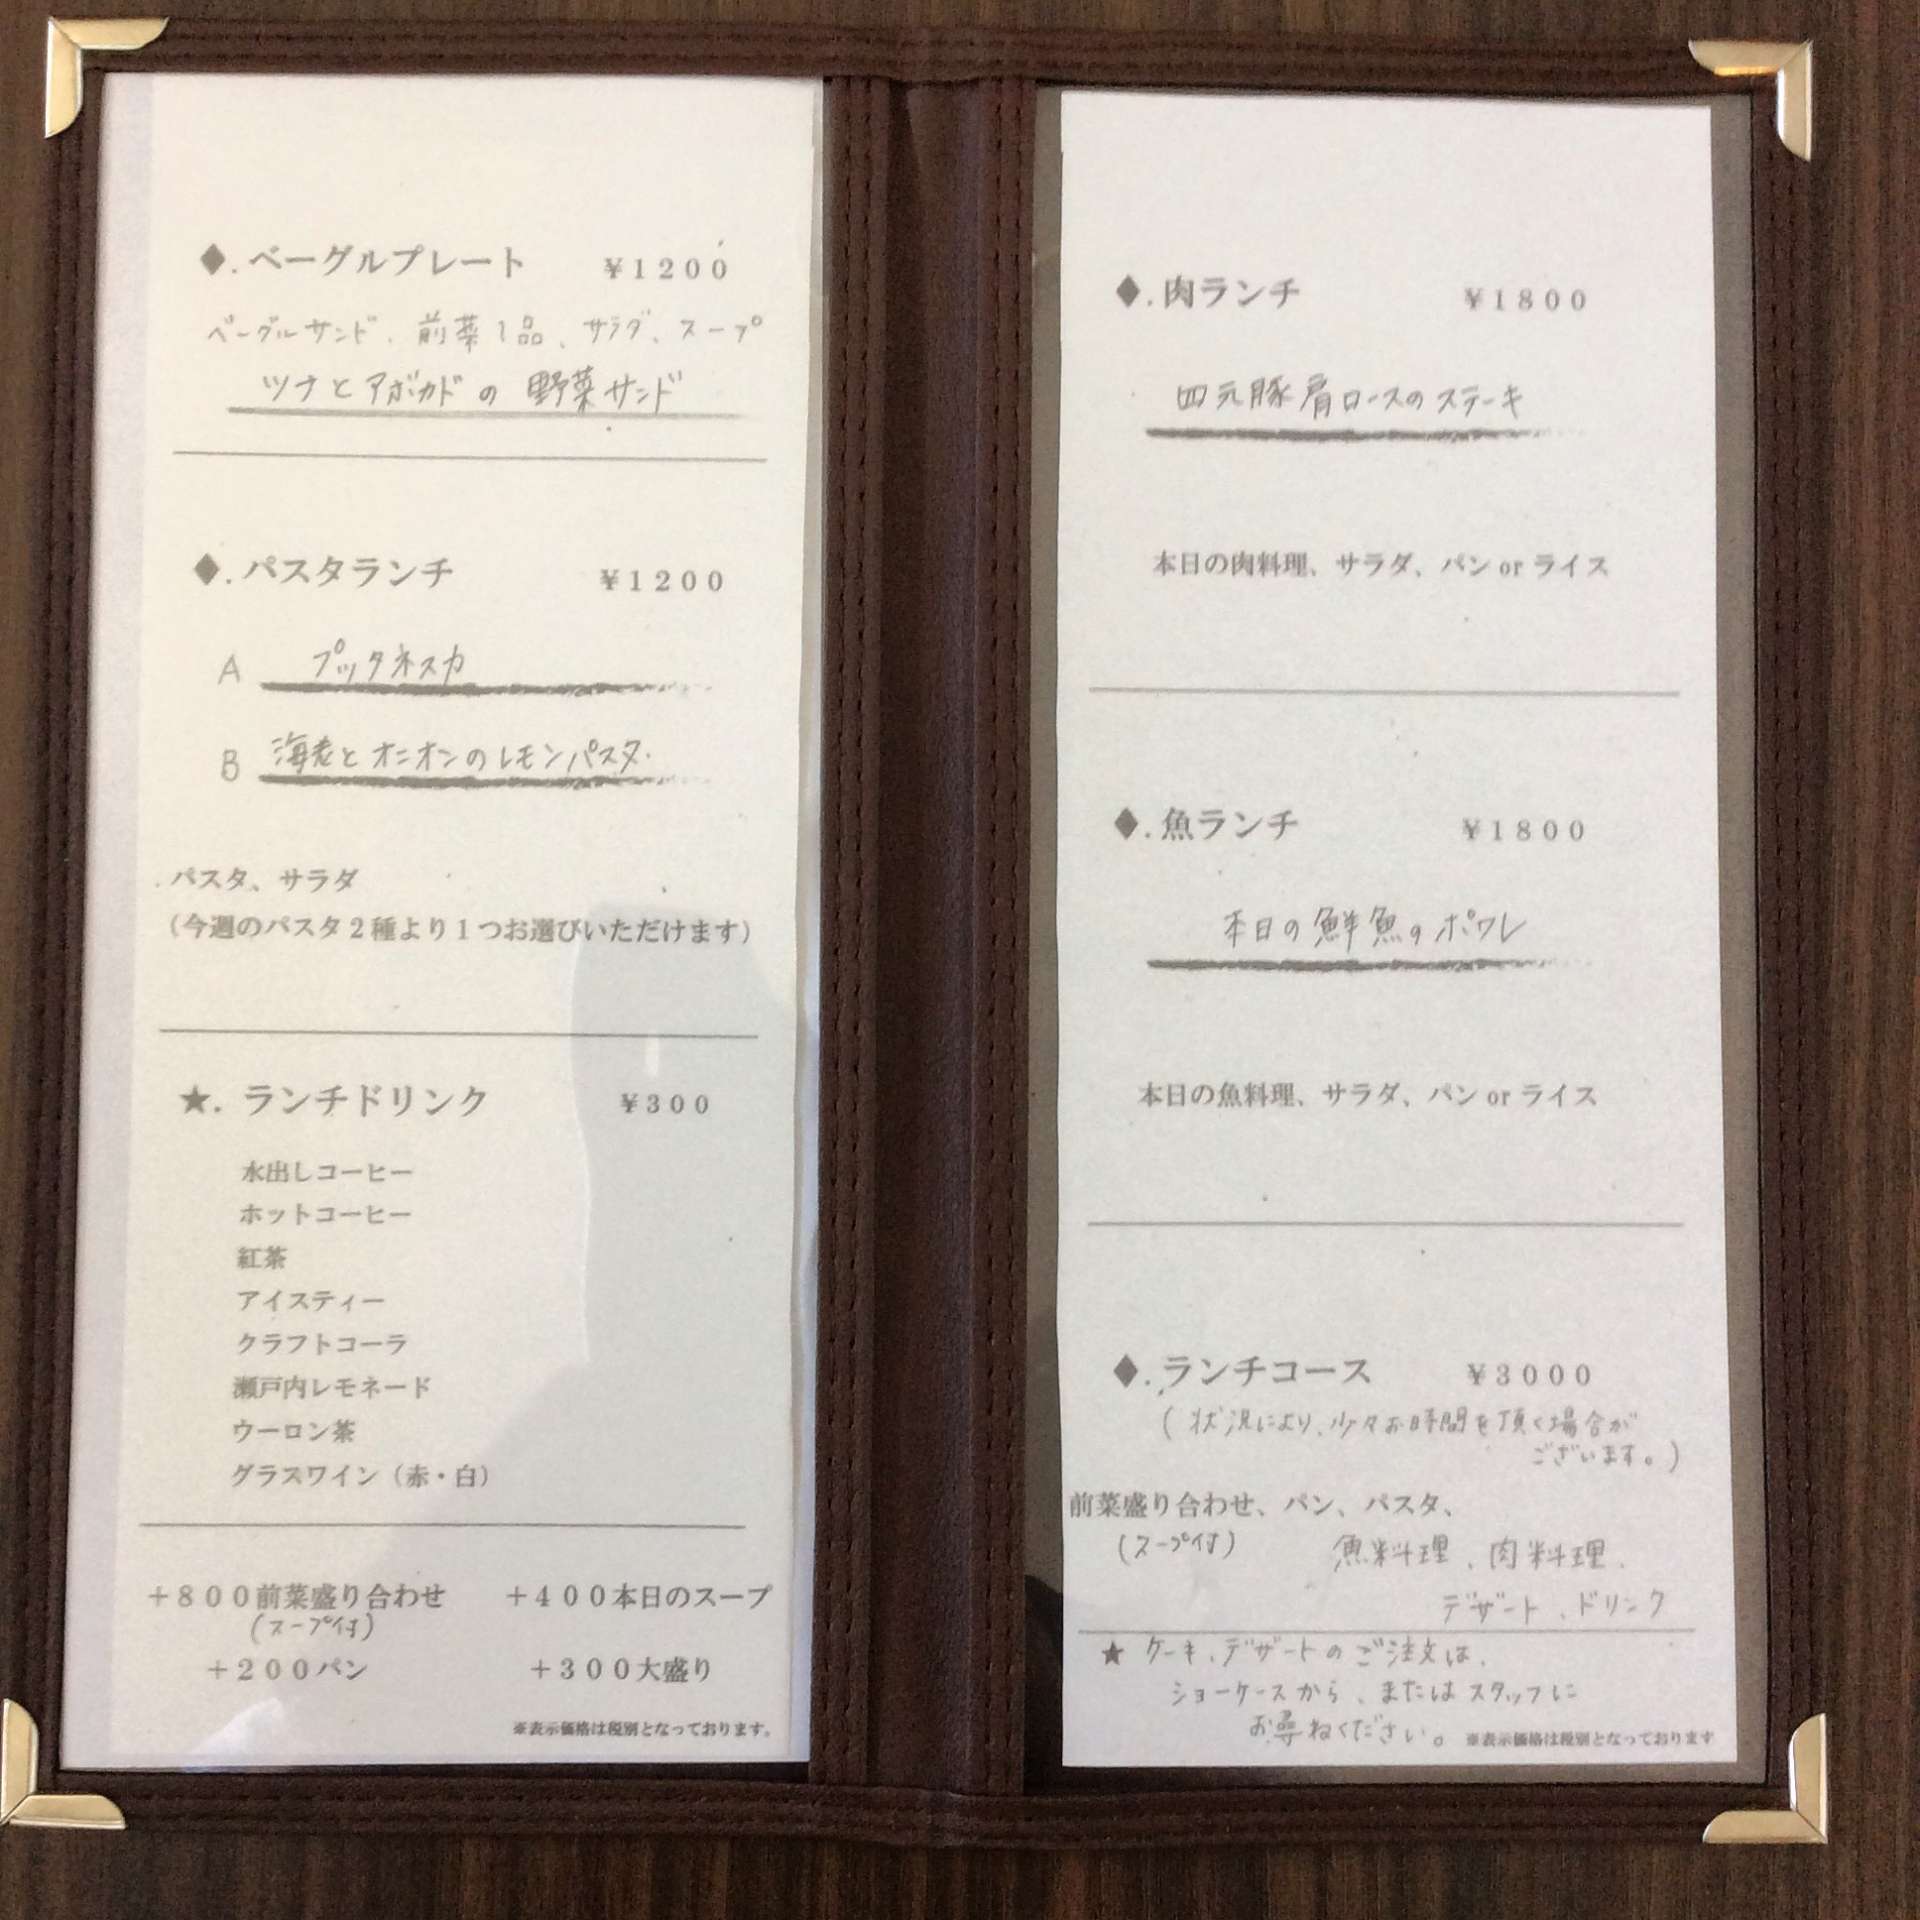 ◆.ベーグルプレート ￥1200
ベーグルサンド、前菜1品、サラダ、スープ
ツナとアボカドの野菜サンド
◆.パスタランチ ￥1200
A プッタネスカ
B 海老とオニオンのレモンパスタ
パスタ、サラダ
（今週のパスタ２種より１つお選びいただけます）
★.ランチドリンク ￥300
水出しコーヒー
ホットコーヒー
紅茶
アイスティー
クラフトコーラ
瀬戸内レモネード
ウーロン茶
グラスワイン（赤・白）
＋８００前菜盛り合わせ ＋４００本日のスープ
(スープ付)
＋２００パン ＋３００大盛り
※表示価格は税別となっております。
◆.肉ランチ ￥1800
四元豚肩ロースのステーキ
本日の肉料理、サラダ、パン or ライス
◆.魚ランチ ￥1800
本日の鮮魚のポワレ
本日の魚料理、サラダ、パン or ライス
◆.ランチコース ￥3000
(状況により、少々お時間を頂く場合が
ございます。)
前菜盛り合わせ、パン、パスタ、
(スープ付) 魚料理、肉料理、
デザート、ドリンク
★ ケーキ、デザートのご注文は、
ショーケースから、またはスタッフに
お尋ねください。 ※表示価格は税別となっております